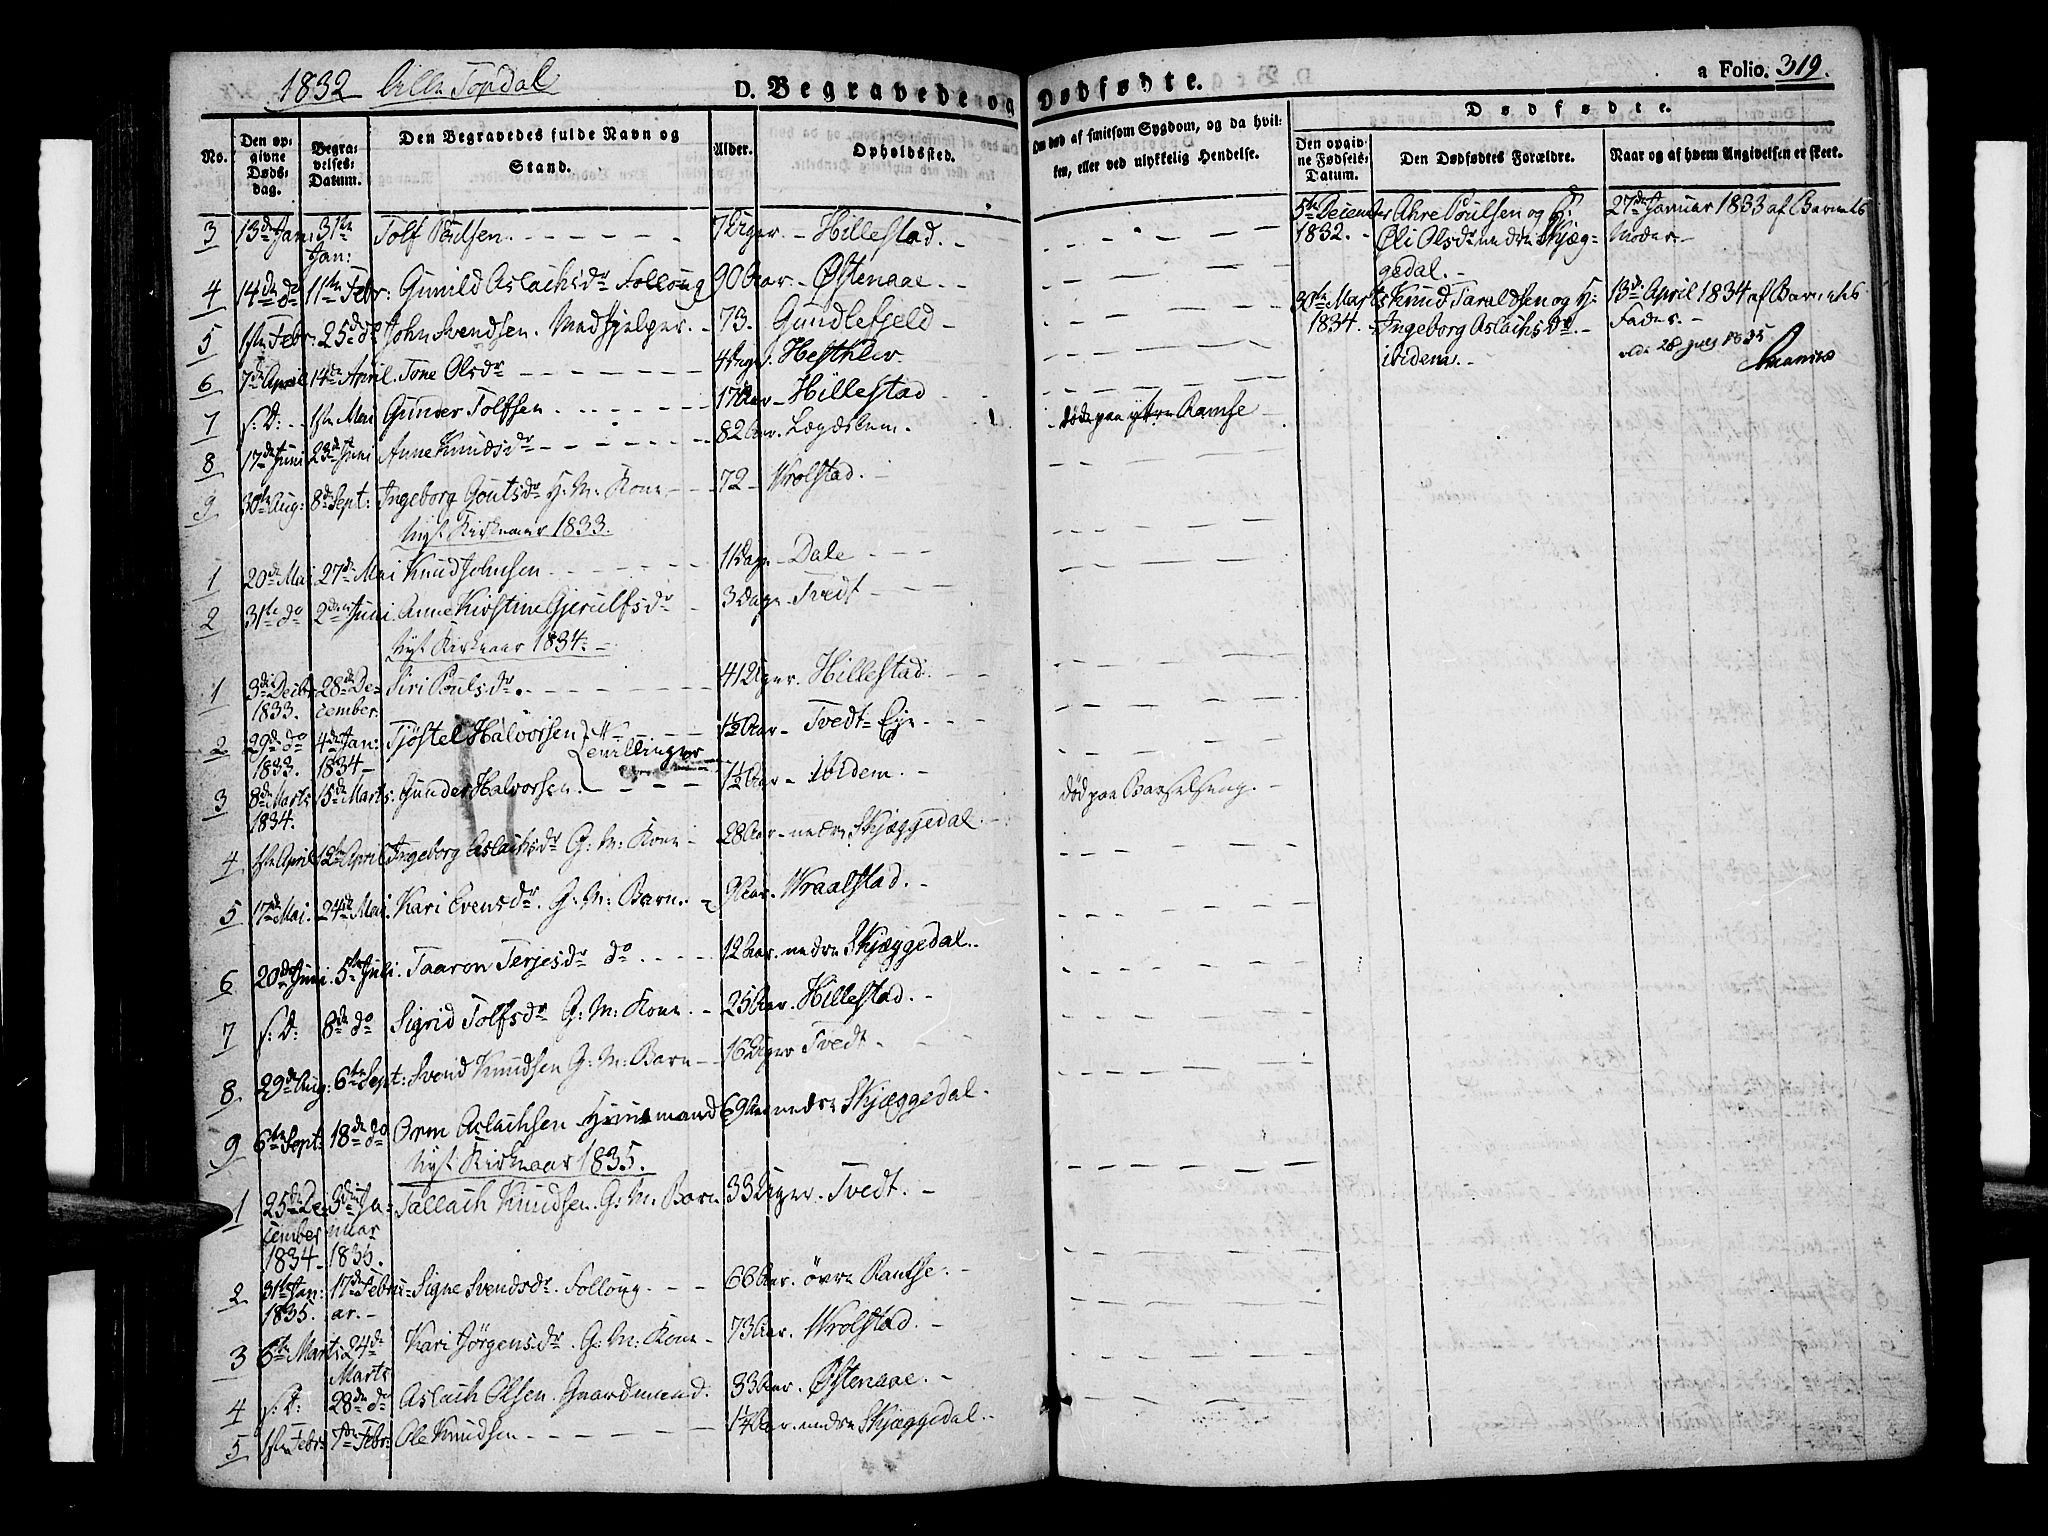 1832 Lille Topdal
D. Begravede og Dødfødte. a Folio. 319.
No. Den opgivne Dødsdag. Begravelses-Datum. Den Begravedes fulde Navn og Stand. Alder. Opholdssted. Om død af smitsom Sygdom, og da hvilken, eller ved ulykkelig Hendelse.
Dødfødte.
Den opgivne Fødsels-Datum. Den Dødfødtes Forældre. Naar og af hvem Angivelsen er skeet.
3 13de Jan: 31te Jan: Tolf Poulsen. 7 Uger. Hillestad.
4 14de do 11te Febr: Gunild Aslachsdr Folloug 90 Aar. Østenaae.
5 1ste Febr: 25de do John Svendsen. Medhjelper. 73. Gundlefjeld
6 7de April 14de April. Tone Olsdr 4 Dage. Hestklev.
7 s: D: 1ste Mai Gunder Tolfsen. 17 Aar Hillestad døde paa ytre Ramse
8 17de Juni 23de Juni Anne Knudsdr 82 Aar. Lægdslem.
9 30te Aug: 8de Sept: Ingeborg Goutsdr H: M: Kone 72 Wrolstad.
Nyt Kirkeaar 1833.
1 20de Mai 27de Mai Knud Johnsen 11 Dage Dale
2 31te do 2den Juni Anne Kirstine Gjerulfsdr 3 Dage Tvedt
Nyt Kirkeaar 1834.
1 3die Decbr 1833. 28de December. Siri Poulsdr. 41 Uger. Hillestad.
2 29de do 1833. 4de Jan: 1834 Tjöstel Halvorsen 1½ Aar Tvedt Eje.
Tvillinger
3 8de Marts 1834. 15de Marts. Gunder Halvorsen. 1½ Aar ibidem.
4 1ste April 12te April Ingeborg Aslachsdr G: M: Kone 28 Aar nedre Skjæggedal. død paa Barselseng.
5 17de Mai. 24de Mai. Kari Evensdr. G: M: Barn. 9 Aar. Wraalstad.
6 20de Juni. 5te Juli. Taaron Terjesdr do 12 Aar. nedre Skjæggedal.
7 s: D: 8de do Sigrid Tolfsdr G: M: Kone 25 Aar. Hillestad.
8 29de Aug: 6te Sept: Svend Knudsen G: M: Barn 16 Uger Tvedt
9 6te Sept: 18de do Orm Aslachsen Huusmand 69 Aar nedre Skjæggedal.
Nyt Kirkeaar 1835.
1 25de December 1834 3die Januar 1835. Tallach Knudsen. G: M: Barn 33 Uger. Tvedt.
2 31te Jan: 1835. 17de Februar. Signe Svendsdr. Folloug. 66 Aar. övre Ramse.
3 6te Marts 24de Marts Kari Jörgensdr. G: M: Kone 73 Aar. Wrolstad.
4 s: D: 28de do Aslach Olsen. Gaardmand. 33 Aar. Østenaae.
5 1ste Febr: 7de Febr: Ole Knudsen 1¼ Aar. nedre Skjæggedal.
5te Decembr 1832. Ahre Poulsen og H: Øli Olsdr nedre Skjæggedal. 27de Januar 1833 af Barnets Moder.
30te Marts 1834. Knud Taraldsen og H: Ingeborg Aslachsdr. ibidem. 13de April 1834 af Barnets Fader.